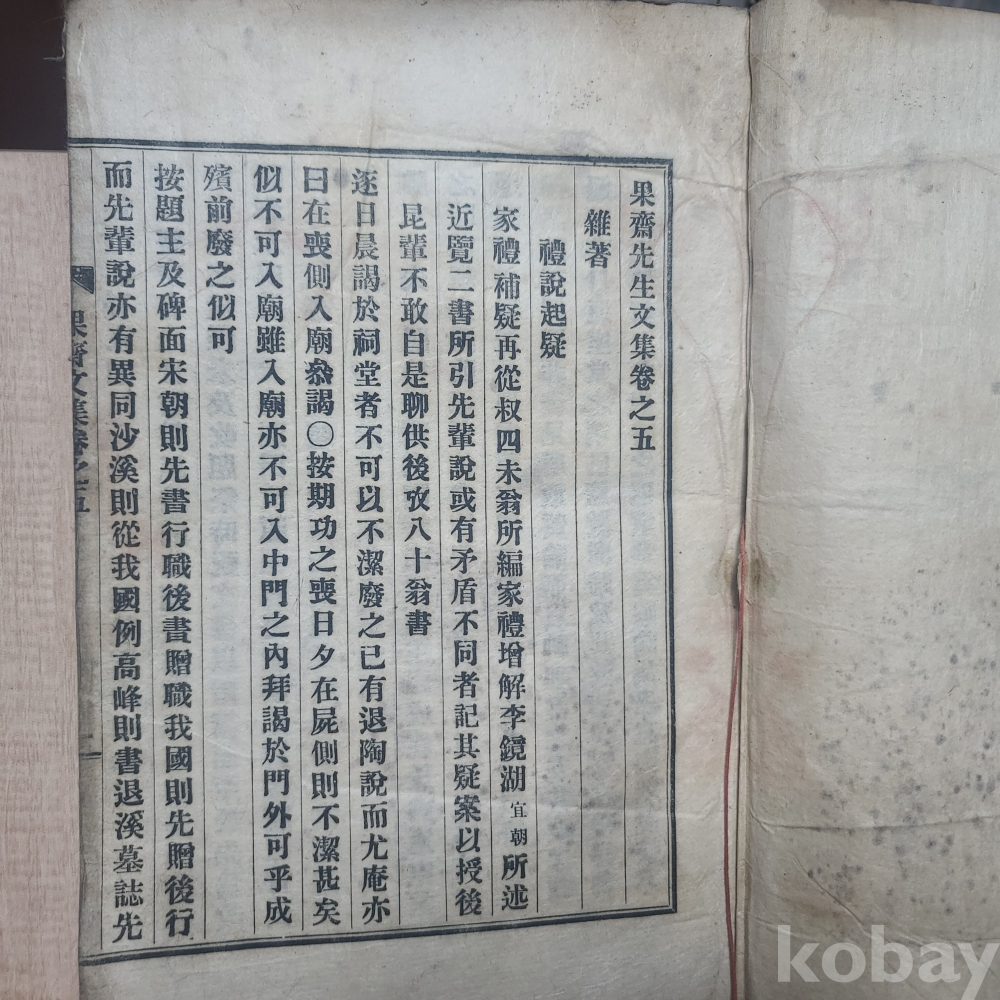 果齋先生文集卷之五
雜著
禮說起疑
家禮補疑再從叔四未翁所編家禮增解李鏡湖宜朝所述
近覽二書所引先輩說或有矛盾不同者記其疑案以授後
昆輩不敢自是聊供後攷八十翁書
逐日晨謁於祠堂者不可以不潔廢之已有退陶說而尤庵亦
曰在喪側入廟叅謁〇按期功之喪日夕在屍側則不潔甚矣
似不可入廟雖入廟亦不可入中門之內拜謁於門外可乎成
殯前廢之似可
按題主及碑面宋朝則先書行職後書贈職我國則先贈後行
而先輩說亦有異同沙溪則從我國例高峰則書退溪墓誌先
果齋文集卷之五
kobay